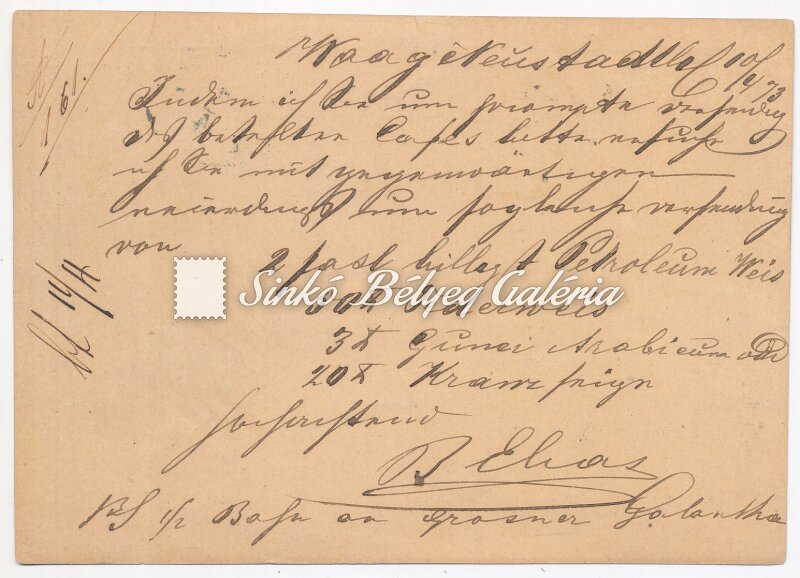 Waag Neustadtl 10/4 73
Indem ich Sie um prompte versendung
des bestellten Cafés bitte ersuche
ich Sie mit gegenwärtigen
neierdings um sogleiche versendung
von
2 fasl billegst Petroleum Weis
Federweis
3 ℔ Gumi Arabicum
20 ℔ Kranzfeign
hochachtend
B Elias
PS 1/2 Bahn an Grosner Galantha
Sinkó Bélyeg Galéria